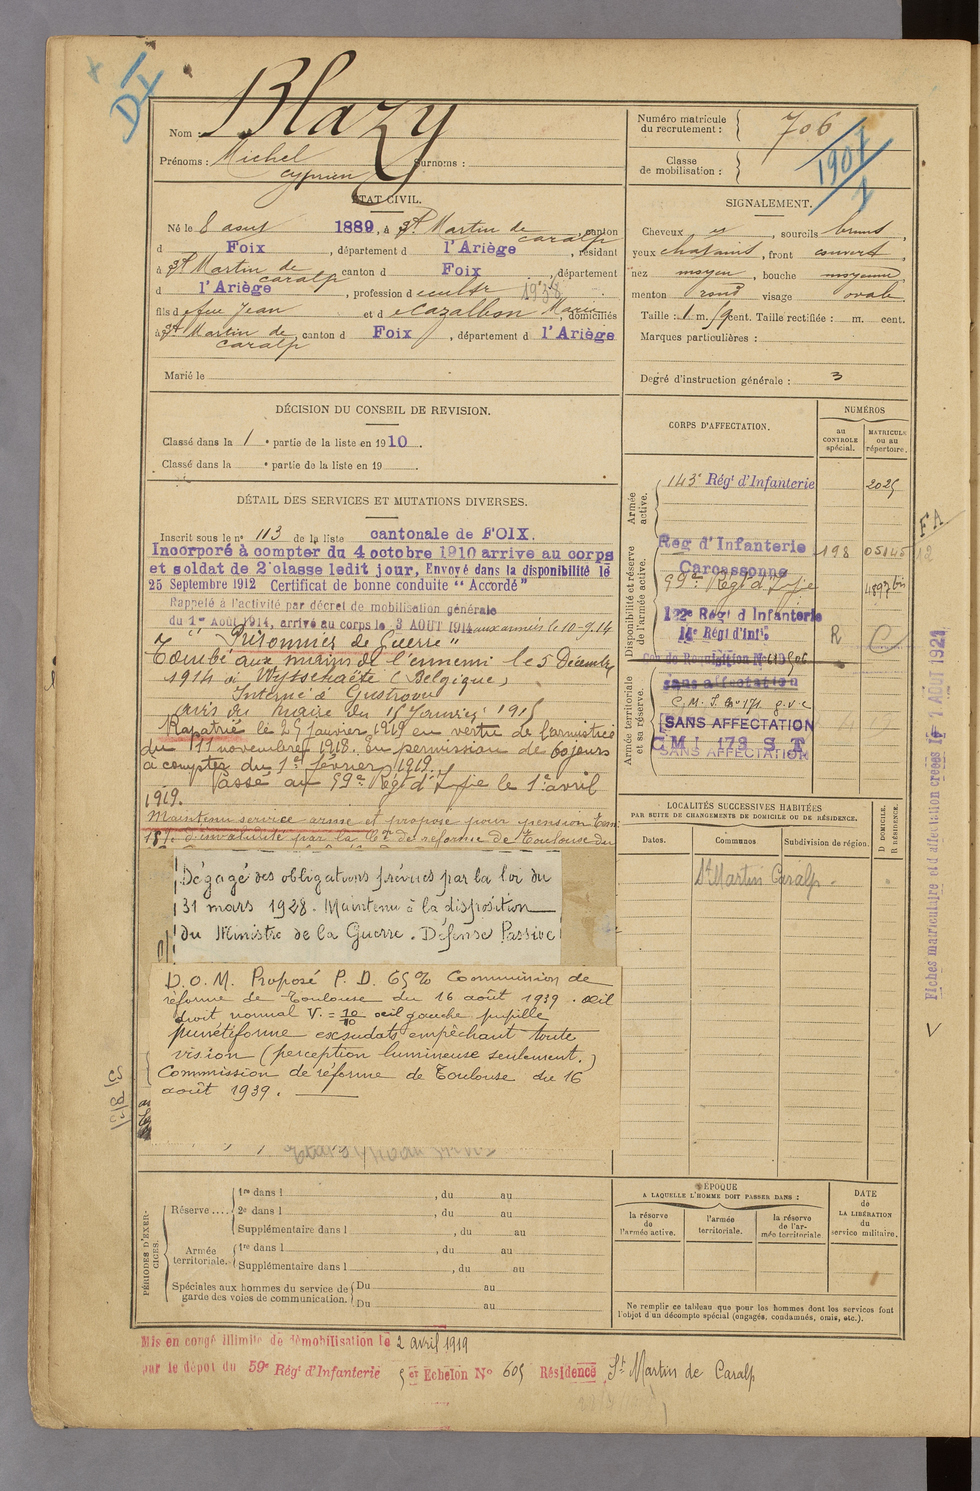 Nom : Blazy
Prénoms : Michel Surnoms :
Cyprien
Numéro matricule
du recrutement : 706
Classe
de mobilisation : 1907
ÉTAT CIVIL.
Né le 8 aout 1889, à St Martin de caralp, canton
d Foix, département d l'Ariège, résidant
à St Martin de caralp, canton d Foix, département
d l'Ariège, profession d cultr 1938
fils de feu Jean et de Cazalbon Marie, domiciliés
à St Martin de caralp, canton d Foix, département d l'Ariège
Marié le
SIGNALEMENT.
Cheveux et, sourcils bruns,
yeux chatains, front couvert,
nez moyen, bouche moyenne
menton rond visage ovale
Taille : 1 m. cent. Taille rectifiée : m. cent.
Marques particulières :
Degré d'instruction générale : 3
DÉCISION DU CONSEIL DE REVISION.
Classé dans la 1e partie de la liste en 1910.
Classé dans la e partie de la liste en 19
DÉTAIL DES SERVICES ET MUTATIONS DIVERSES.
Inscrit sous le n° 113 de la liste cantonale de FOIX.
Incorporé à compter du 4 octobre 1910 arrive au corps
et soldat de 2e classe ledit jour, Envoyé dans la disponibilité le
25 Septembre 1912 Certificat de bonne conduite "Accordé"
Rappelé à l'activité par décret de mobilisation générale
du 1er Août 1914, arrivé au corps le 3 AOUT 1914 aux armées le 10-9.14
"Prisonnier de Guerre"
Tombé aux mains de l'ennemi le 5 Décembre
1914 à Wytschaete (Belgique)
Interné à Gustrow
avis du maire du 15 Janvier 1915
Rapatrié le 25 janvier 1919 en vertu de l'armistice
du 11 novembre 1918. En permission de 60 jours
à compter du 1er février 1919.
Passé au 59e Régt d'Inf.ie le 1er avril
1919.
Maintenu service armé et proposé pour pension tem
15% d'invalidité par la Con de réforme de Toulouse du
Dégagé des obligations prévues par la loi du
31 mars 1928. Maintenu à la disposition
du Ministre de la Guerre. Défense Passive
D.O.M. Proposé P.D. 65% Commission de
réforme de Toulouse du 16 août 1939. œil
droit normal V. = 10/10 œil gauche pupille
punctiforme exsudats empêchant toute
vision (perception lumineuse seulement.)
Commission de réforme de Toulouse du 16
août 1939.
CORPS D'AFFECTATION.
NUMÉROS
au CONTROLE spécial.
MATRICULE ou au répertoire.
Armée active.
143e Régt d'Infanterie 2025
Disponibilité et réserve de l'armée active.
Reg d'Infanterie 198 05145
Carcassonne
59e Régt d'Inf.ie
122e Régt d'Infanterie R C
14e Régt d'Inf.ie
Armée territoriale et sa réserve.
sans affectation
SANS AFFECTATION
C M I 179 S T
SANS AFFECTATION
LOCALITÉS SUCCESSIVES HABITÉES
PAR SUITE DE CHANGEMENTS DE DOMICILE OU DE RÉSIDENCE.
Dates. Communes Subdivision de région. D DOMICILE. R RÉSIDENCE.
St Martin Caralp
PÉRIODES D'EXERCICES.
Réserve .... 1re dans l , du au
2e dans l , du au
Supplémentaire dans l , du au
Armée territoriale. 1re dans l , du au
Supplémentaire dans l , du au
Spéciales aux hommes du service de garde des voies de communication. Du au
Du au
ÉPOQUE
A LAQUELLE L'HOMME DOIT PASSER DANS :
la réserve de l'armée active.
l'armée territoriale.
la réserve de l'armée territoriale
DATE de LA LIBÉRATION du service militaire.
Ne remplir ce tableau que pour les hommes dont les services font
l'objet d'un décompte spécial (engagés, condamnés, omis, etc.).
Mis en congé illimité de démobilisation le 2 avril 1919
par le dépôt du 59e Régt d'Infanterie 5e Echelon N° 605 Résidence St Martin de Caralp